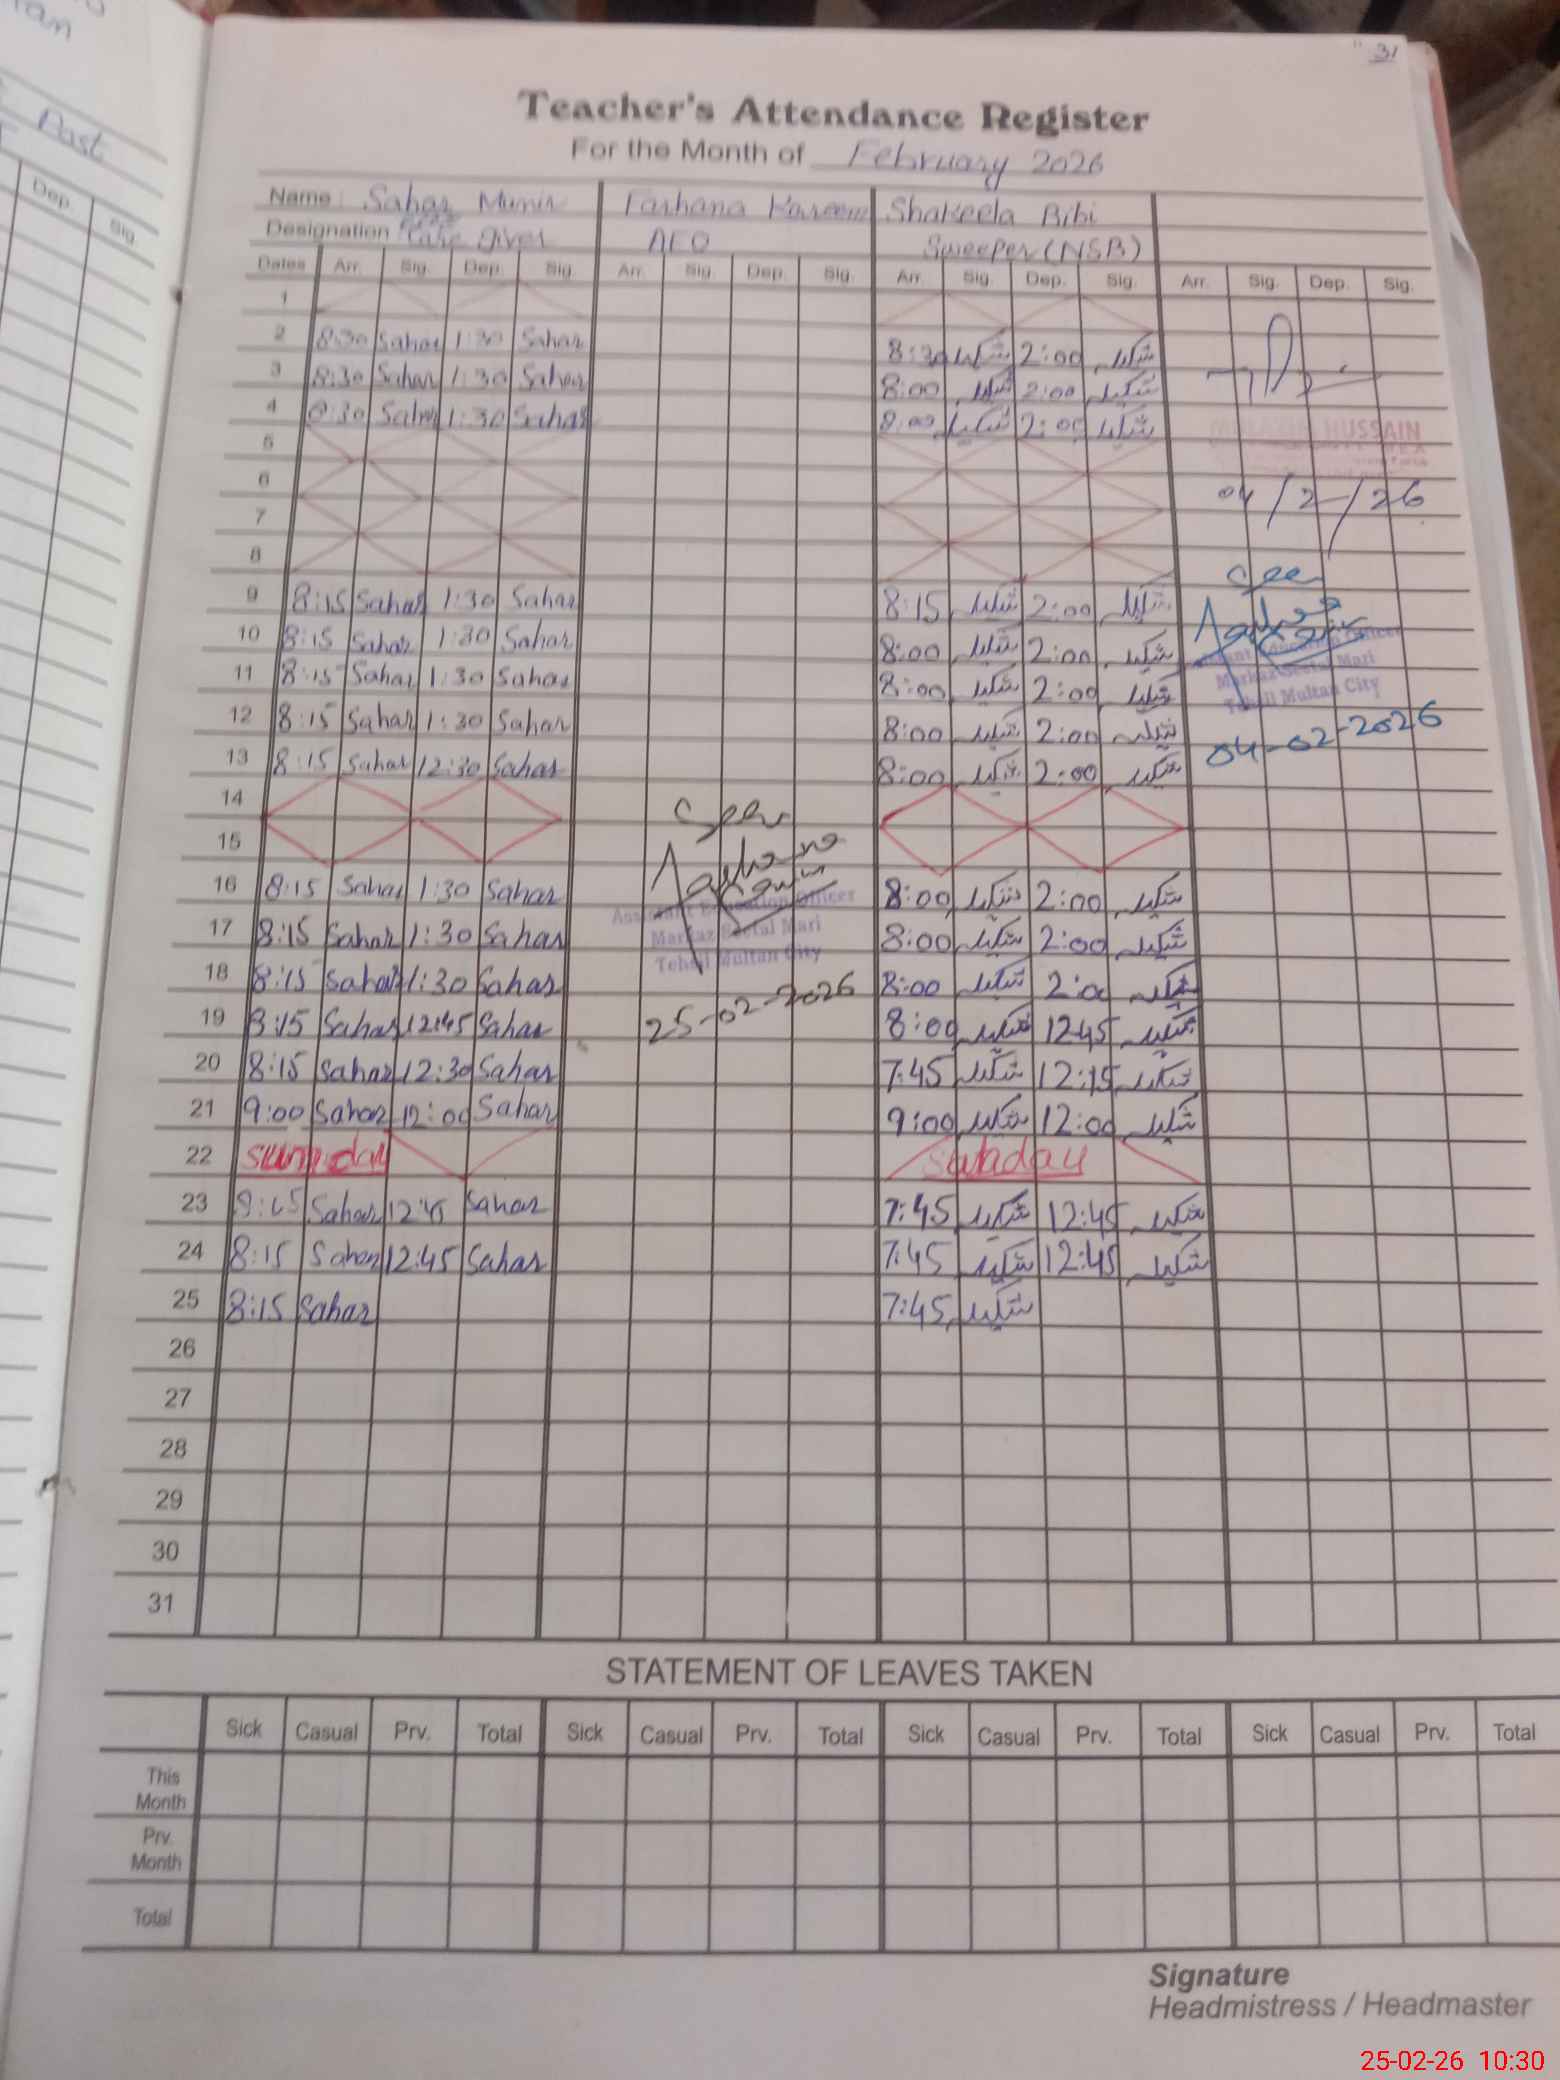 31
Teacher's Attendance Register
For the Month of February 2026
Name: Sahar Munir Farhana Kareem Shakeela Bibi
Designation Care giver AEO Sweeper (NSB)
Dates Arr. Sig. Dep. Sig. Arr. Sig. Dep. Sig. Arr. Sig. Dep. Sig. Arr. Sig. Dep. Sig.
1
2 8:30 Sahar 1:30 Sahar 8:30 شکیلہ 2:00 شکیلہ
3 8:30 Sahar 1:30 Sahar 8:00 شکیلہ 2:00 شکیلہ
4 8:30 Sahar 1:30 Sahar 8:00 شکیلہ 2:00 شکیلہ
HUSSAIN
5
6
04/2/26
7
8
Seen
9 8:15 Sahar 1:30 Sahar 8:15 شکیلہ 2:00 شکیلہ
10 8:15 Sahar 1:30 Sahar 8:00 شکیلہ 2:00 شکیلہ
Assistant Education Officer
11 8:15 Sahar 1:30 Sahar 8:00 شکیلہ 2:00 شکیلہ
Markaz Social Mari
Tehsil Multan City
12 8:15 Sahar 1:30 Sahar 8:00 شکیلہ 2:00 شکیلہ
04-02-2026
13 8:15 Sahar 12:30 Sahar 8:00 شکیلہ 2:00 شکیلہ
14
Seen
15
Farhana Kareem
16 8:15 Sahar 1:30 Sahar 8:00 شکیلہ 2:00 شکیلہ
Assistant Education Officer
17 8:15 Sahar 1:30 Sahar 8:00 شکیلہ 2:00 شکیلہ
Markaz Social Mari
Tehsil Multan City
18 8:15 Sahar 1:30 Sahar 8:00 شکیلہ 2:00 شکیلہ
25-02-2026
19 8:15 Sahar 12:45 Sahar 8:00 شکیلہ 12:45 شکیلہ
20 8:15 Sahar 12:30 Sahar 7:45 شکیلہ 12:15 شکیلہ
21 9:00 Sahar 12:00 Sahar 9:00 شکیلہ 12:00 شکیلہ
22 Sunday Sunday
23 8:15 Sahar 12:45 Sahar 7:45 شکیلہ 12:45 شکیلہ
24 8:15 Sahar 12:45 Sahar 7:45 شکیلہ 12:45 شکیلہ
25 8:15 Sahar 7:45 شکیلہ
26
27
28
29
30
31
STATEMENT OF LEAVES TAKEN
Sick Casual Prv. Total Sick Casual Prv. Total Sick Casual Prv. Total Sick Casual Prv. Total
This Month
Prv. Month
Total
Signature
Headmistress / Headmaster
25-02-26 10:30
Past
Dep. Sig.